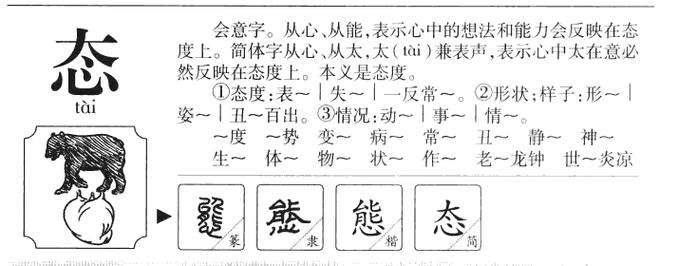 态
tài
会意字。从心、从能,表示心中的想法和能力会反映在态
度上。简体字从心、从太,太(tài)兼表声,表示心中太在意必
然反映在态度上。本义是态度。
①态度:表～｜失～｜一反常～。②形状;样子:形～｜
姿～｜丑～百出。③情况:动～｜事～｜情～。
～度 ～势 变～ 病～ 常～ 丑～ 静～ 神～
生～ 体～ 物～ 状～ 作～ 老～龙钟 世～炎凉
篆
態 隶
態 楷
态 简